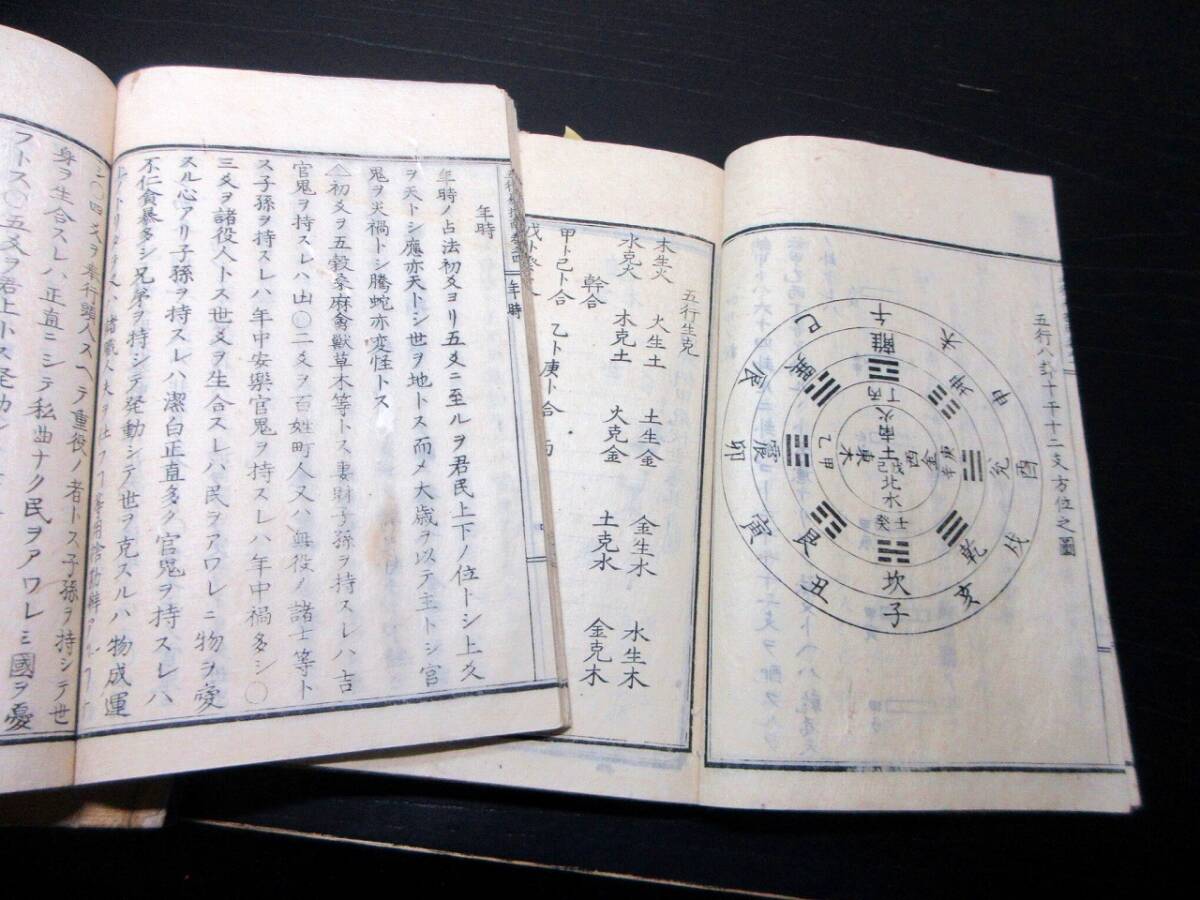 五行八卦十干十二支方位之圖
午
未
申
酉
戌
亥
子
丑
寅
卯
辰
巳
離
兌
乾
坎
艮
震
巽
丁丙
乙甲
南火
東木
土
己戊
西金
庚辛
北水
癸壬
五行生克
木生火 火生土 土生金 金生水 水生木
水克火 木克土 火克金 土克水 金克木
幹合
甲ト己ト合 乙ト庚ト合 丙
戊ト癸ト
年時
年時ノ占法初爻ヨリ五爻ニ至ルヲ君民上下ノ位トシ上爻
ヲ天トシ應亦天トシ世ヲ地トス而メ大歳ヲ以テ主トシ官
鬼ヲ災禍トシ騰蛇亦変性トス
初爻ヲ五穀桑麻禽獣草木等トス妻財子孫ヲ持スレハ吉
官鬼ヲ持スレハ凶〇二爻ヲ百姓町人又ハ無役ノ諸士等ト
ス子孫ヲ持スレハ年中安樂官鬼ヲ持スレハ年中禍多シ〇
三爻ヲ諸役人トス世爻ヲ生合スレハ民ヲアワレミ物ヲ愛
スル心アリ子孫ヲ持スレハ潔白正直多ク官鬼ヲ持スレハ
不仁貪暴多シ兄弟ヲ持シテ発動シテ世ヲ克スルハ物成運
〇四爻ヲ奉行頭人スヘテ重役ノ者トス子孫ヲ持シテ世
身ヲ生合スレハ正直ニシテ私曲ナク民ヲアワレミ國ヲ憂
フトス〇五爻ヲ君上トス発動